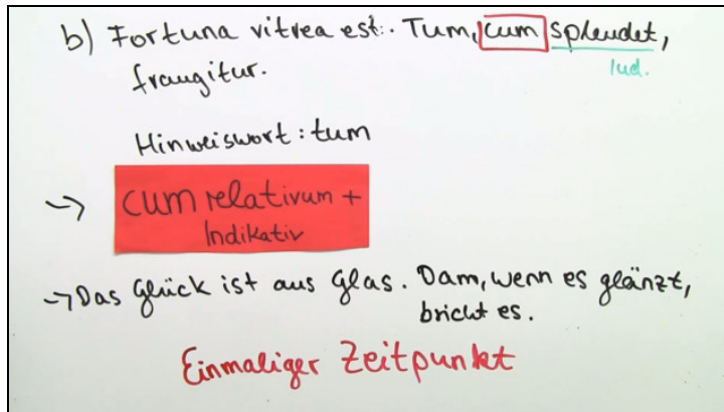 b) Fortuna vitrea est. Tum, cum splendet,
frangitur.
Ind.
Hinweiswort: tum
→ cum relativum +
Indikativ
→ Das Glück ist aus Glas. Dann, wenn es glänzt,
bricht es.
Einmaliger Zeitpunkt